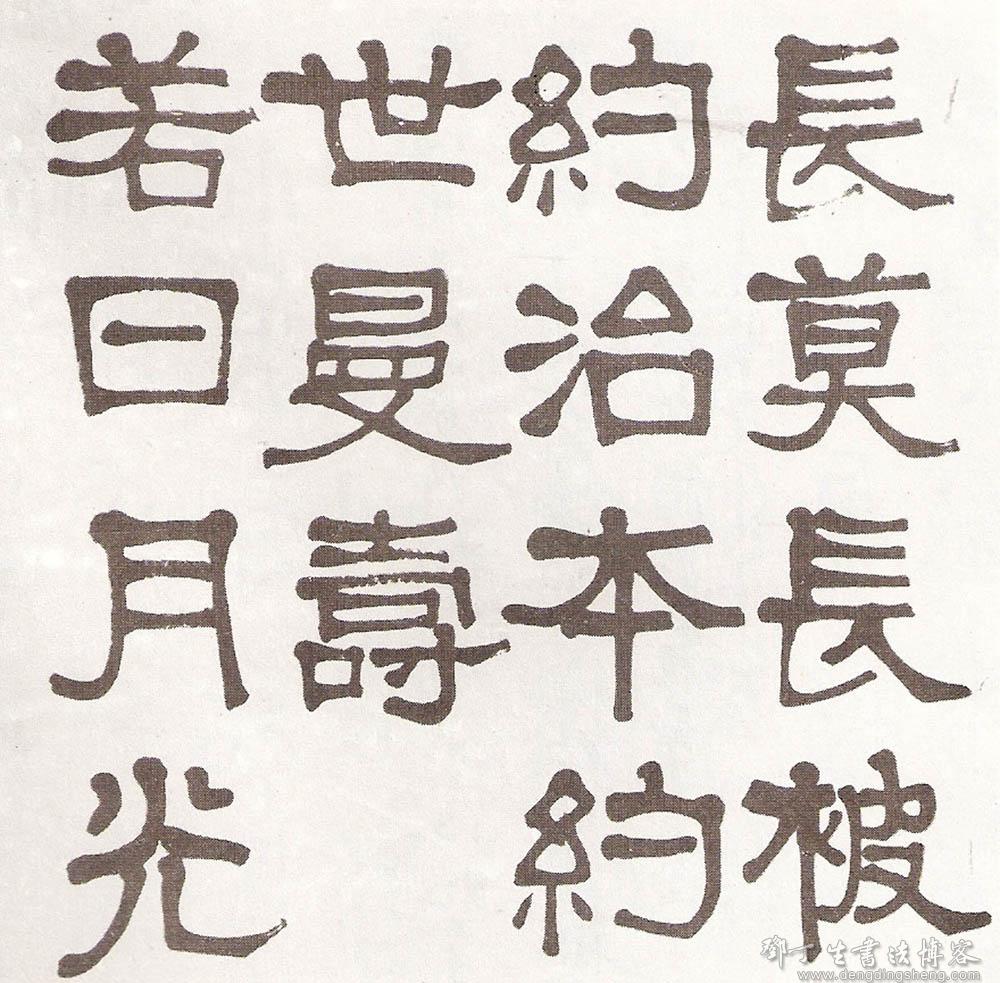 長莫長被
約治本約
世曼壽
若日月光
鄧丁生書法博客
www.dengdingsheng.com